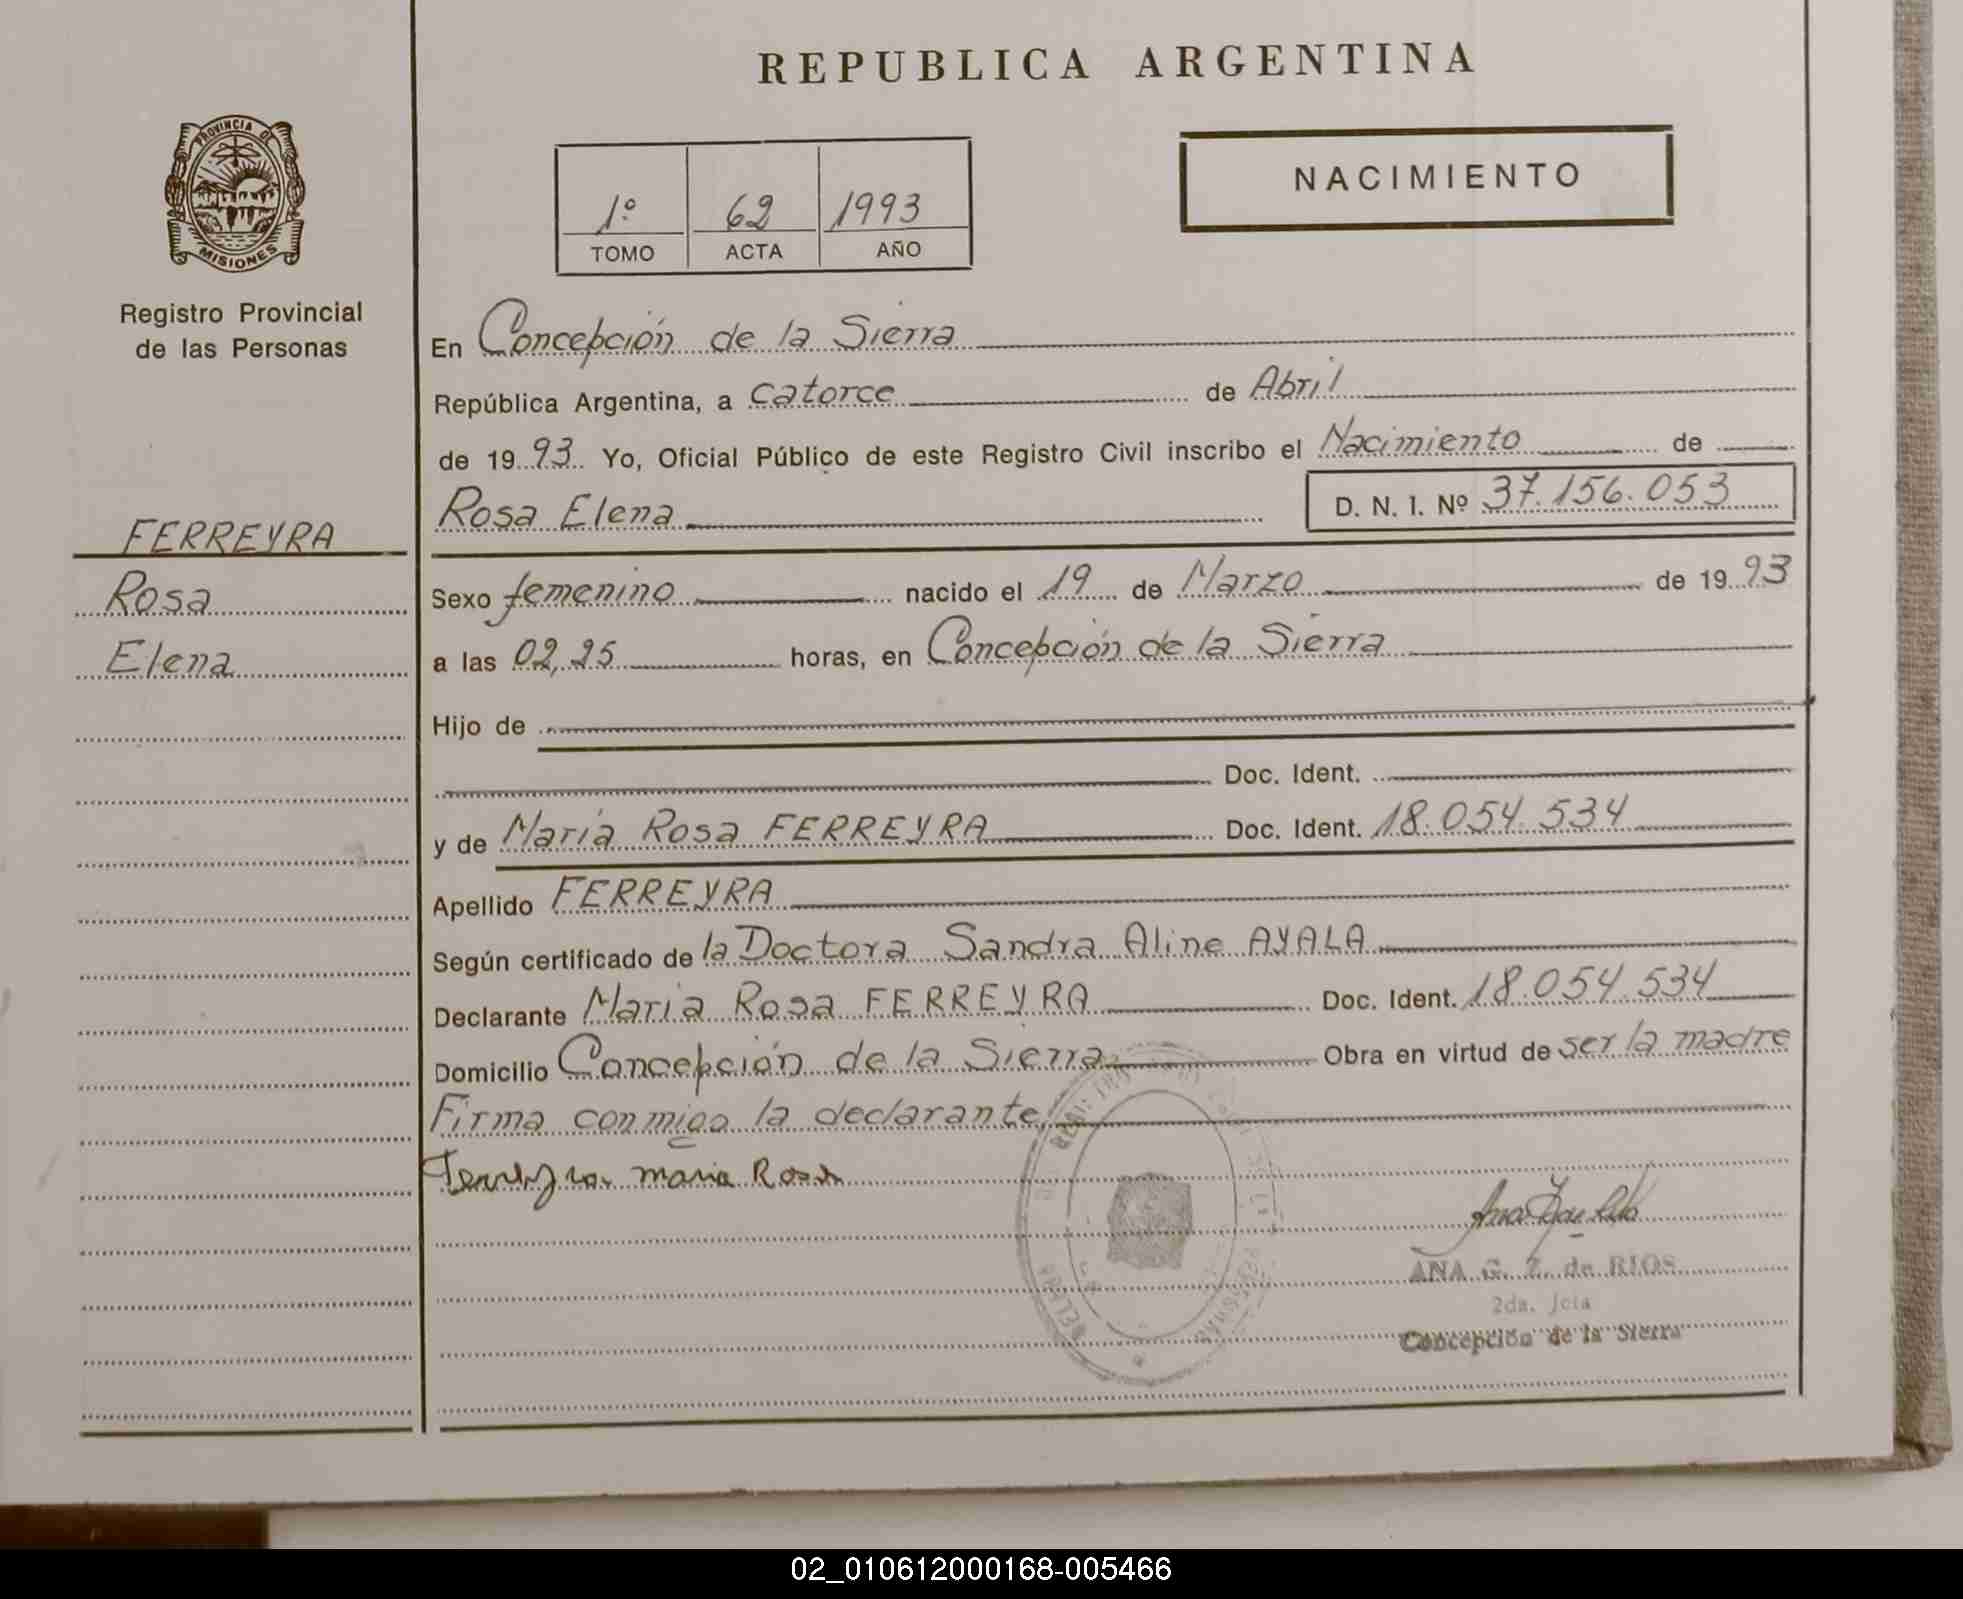 REPUBLICA ARGENTINA
PROVINCIA DE
MISIONES
Registro Provincial
de las Personas
1º 62 1993
TOMO ACTA AÑO
NACIMIENTO
FERREYRA
Rosa
Elena
En Concepción de la Sierra
República Argentina, a catorce de Abril
de 1993. Yo, Oficial Público de este Registro Civil inscribo el Nacimiento de
Rosa Elena D. N. I. Nº 37.156.053
Sexo femenino nacido el 19 de Marzo de 1993
a las 02,25 horas, en Concepción de la Sierra
Hijo de
Doc. Ident.
y de María Rosa FERREYRA Doc. Ident. 18.054.534
Apellido FERREYRA
Según certificado de la Doctora Sandra Aline AYALA
Declarante María Rosa FERREYRA Doc. Ident. 18.054.534
Domicilio Concepción de la Sierra Obra en virtud de ser la madre
Firma conmigo la declarante,
Ferreyra maria Rosa
ANA G. Z. de RIOS
2da. Jefa
Concepción de la Sierra
02_010612000168-005466